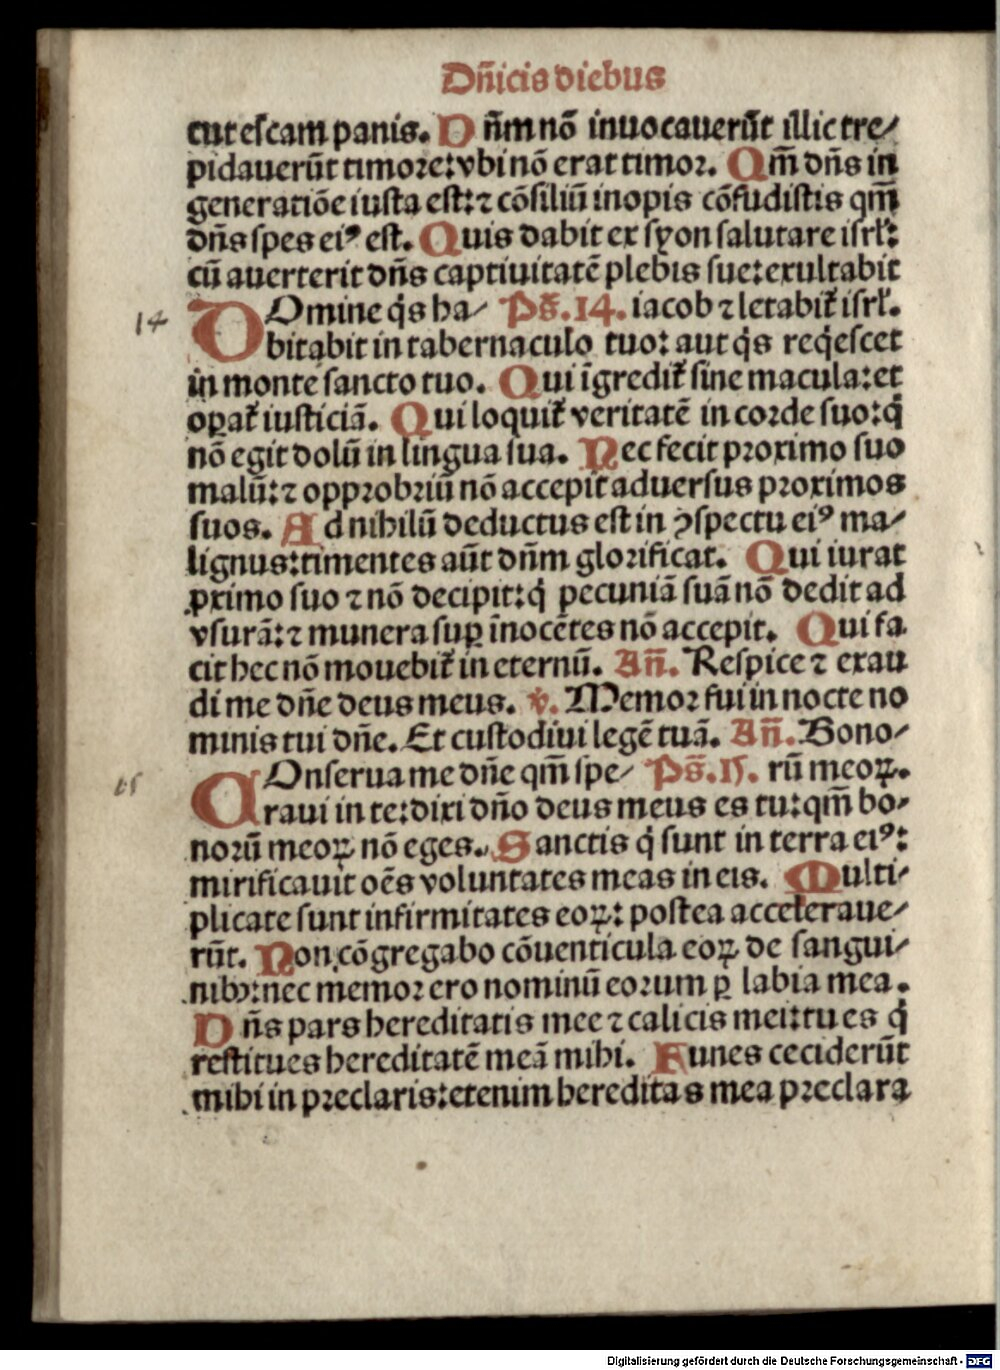 Dn̄icis diebus
cut escam panis. D n̄m nō inuocauerūt illic tre⸗
pidauerūt timore: vbi nō erat timor. Qm̄ dn̄s in
generatiōe iusta est: ⁊ cōsiliū inopis cōfudistis qm̄
dn̄s spes eiꝰ est. Quis dabit ex syon salutare isrl̓:
cū auerterit dn̄s captiuitatē plebis sue: exultabit
DOmine q̇s ha⸗ Ps̄. 14. iacob ⁊ letabit̓ isrl̓.
14
bitabit in tabernaculo tuo: aut q̇s req̇escet
in monte sancto tuo. Qui īgredit̓ sine macula: et
oꝑat̓ iusticiā. Qui loquit̓ veritatē in corde suo: q̇
nō egit dolū in lingua sua. Nec fecit proximo suo
malū: ⁊ opprobriū nō accepit aduersus proximos
suos. Ad nihilū deductus est in ꝯspectu eiꝰ ma⸗
lignus: timentes aūt dn̄m glorificat. Qui iurat
ꝓximo suo ⁊ nō decipit: q̇ pecuniā suā nō dedit ad
vsurā: ⁊ munera suꝑ īnocētes nō accepit. Qui fa
cit hec nō mouebit̓ in eternū. An̄. Respice ⁊ exau
di me dn̄e deus meus. v̓. Memor fui in nocte no
minis tui dn̄e. Et custodiui legē tuā. An̄. Bono⸗
COnserua me dn̄e qm̄ spe⸗ Ps̄. 15. rū meoꝝ.
15
raui in te: dixi dn̄o deus meus es tu: qm̄ bo⸗
norū meoꝝ nō eges. Sanctis q̇ sunt in terra eiꝰ:
mirificauit oēs voluntates meas in eis. Multi⸗
plicate sunt infirmitates eoꝝ: postea acceleraue⸗
rūt. Non cōgregabo cōuenticula eoꝝ de sangui⸗
nibꝫ: nec memor ero nominū eorum ꝑ labia mea.
Dn̄s pars hereditatis mee ⁊ calicis mei: tu es q̇
restitues hereditatē meā mihi. Funes ceciderūt
mihi in preclaris: etenim hereditas mea preclara
Digitalisierung gefördert durch die Deutsche Forschungsgemeinschaft - DFG